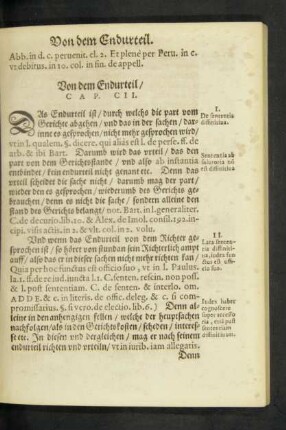 Von dem Endurteil.
Abb. in d. c. peruenit. cl. 2. Et plenè per Petu. in c.
vt debitus. in 10. col. in fin. de appell.
Von dem Endurteil/
CAP. CII.
DAs Endurteil ist/ durch welchs die part vom
Gerichte abgehen/ vnd das in der sachen/ dar-
inne es gesprochen/ nicht mehr gesprochen wird/
vt in l. qualem. §. dicere. qui alias est l. de
urb. & ibi Bart. Darumb wird das vrteil/ das den
part von dem Gerichtsstande/ vnd also ab instantia
entbindet/ kein endurteil nicht genant etc. Denn das
vrteil scheidet die sache nicht/ darumb mag der part/
wider den es gesprochen/ wiederumb des Gerichts ge-
brauchen/ denn es nicht die sache/ sondern alleine den
stand des Gerichts belangt/ nor. Bart. in l. generaliter.
C. de decurio. lib. 10. & Alex. de Imol. consil. 192. in-
cipi. visis actis. in 2. & vlt. col. in 2. volu.
Und wenn das Endurteil von dem Richter ge-
sprochen ist/ so höret von stundan sein Richterlich ampt
auff/ also das er in dieser sachen nicht mehr richten kan/
Quia per hoc functus est officio suo, vt in l. Paulus.
la. 1. ff. de re iud. iuncta l. 1. C. senten. rescin. non poss.
& l. post sententiam. C. de senten. & interlo. om.
ADDE. & c. in literis. de offic. deleg. & c. si com-
promissarius. §. si vero. de electio. lib. 6.) Denn al-
leine in den anhengigen fellen/ welche der heuptsachen
nachvolgen/ als in den Gerichtskosten/ scheden/ interes-
se etc. In diesen vnd dergleichen/ mag er nach seinem
endurteil richten vnd vrteiln/ vt in iurib. iam allegatis.
Denn
I.
De sententia
diffinitiua.
Sententia ab
solutoria nō
est diffinitiua
II.
Lata senten-
tia diffiniti-
ua, iudex fun
ctus est offi-
cio suo.
Iudex habet
cognoscere
super accesso
riis, etiā post
sententiam
diffinitiuam.